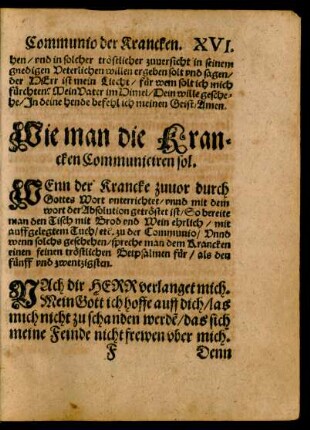 Communio der Krancken. XVI.
hen / vnd in solcher tröstlicher zuuersicht in seinem
gnedigen Veterlichen willen ergeben solt vnd sagen /
der HErr ist mein Liecht / für wem solt ich mich
fürchten? Mein Vater im Himel / Dein wille gesche-
he / In deine hende befehl ich meinen Geist / Amen.
Wie man die Kran-
cken Communicirenn sol.
WEnn der Krancke zuuor durch
Gottes Wort vnterrichtet / vnnd mit dem
wort der Absolution getröstet ist / So bereite
man den Tisch mit Brod vnd Wein ehrlich / mit
auffgelegtem Tuch / etc. zu der Communio / Vnnd
wenn solchs geschehen / spreche man dem Krancken
einen feinen tröstlichen Beipsalmen für / als den
fünff vnd zwentzigsten.
NAch dir HERR verlanget mich.
Mein Gott ich hoffe auff dich / las
mich nicht zu schanden werdē / das sich
meine Feinde nicht frewen vber mich.
F Denn